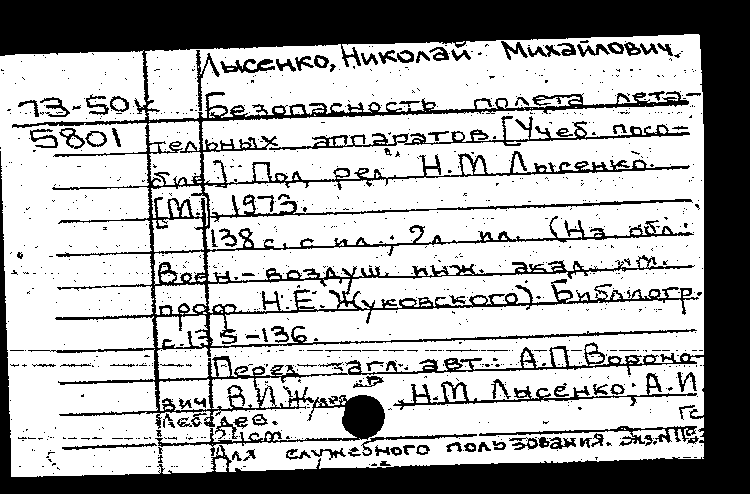 Лысенко, Николай Михайлович
73-50к
5801
Безопасность полета лета-
тельных аппаратов. [Учеб. посо-
бие]. Под ред. Н.М. Лысенко.
[М.], 1973.
138 с. с ил.; 2 л. ил. (На обл.:
Воен.-воздуш. инж. акад. им.
проф. Н.Е. Жуковского). Библиогр.
с. 135-136.
Перед загл. авт.: А.П. Ворона-
вич, В.И. Жулев, Н.М. Лысенко; А.И.
Лебедев.
24 см.
Для служебного пользования. Экз. №